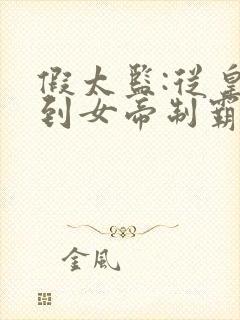 假太監:從皇
到女帝制霸
金風